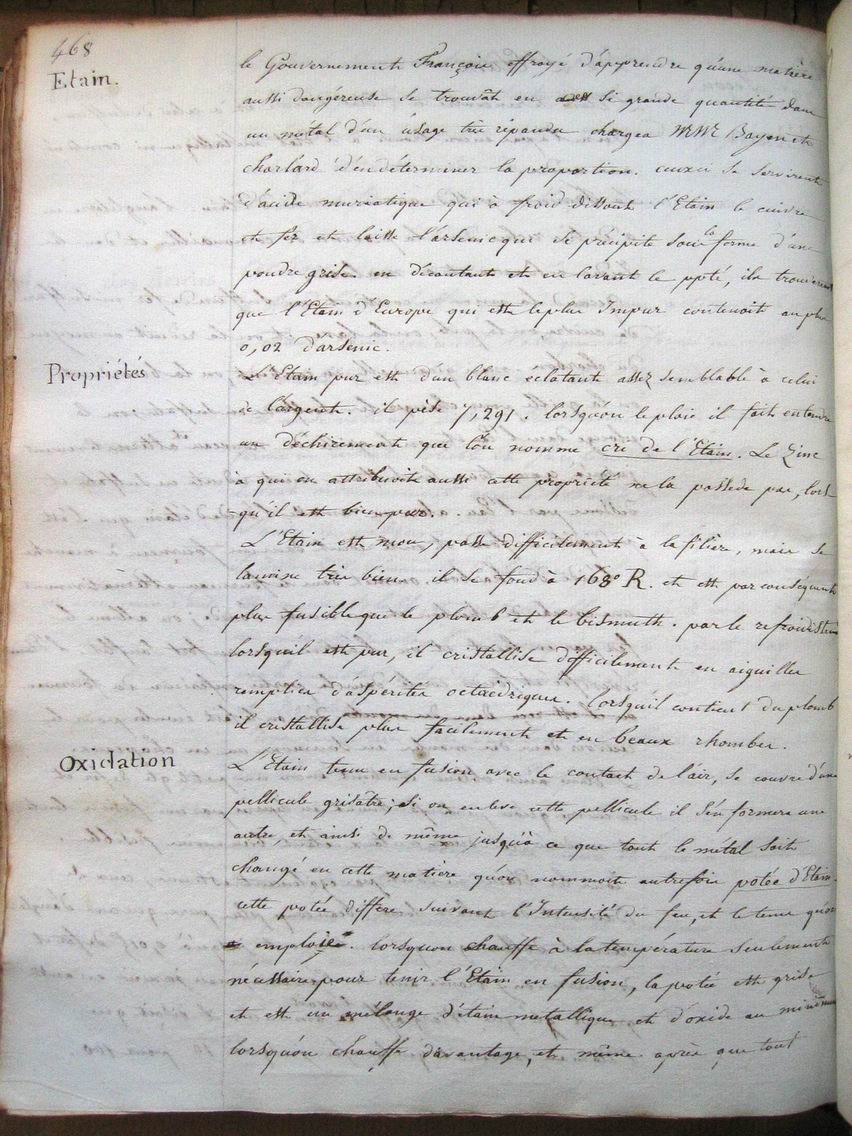 468
Etain.
le Gouvernement François effrayé d'apprendre qu'une matière
aussi dangéreuse se trouvât en si grande quantité dans
un métal d'un usage très répandu chargea MM. Bayen et
charlard d'en déterminer la proportion. ceux ci se servirent
d'acide muriatique qui à froid dissout l'Etain le cuivre
et fer et laisse l'arsenic qui se précipite sous la forme d'une
poudre grise. en décantant et en lavant le ppté, ils trouvèrent
que l'Etain d'Europe qui est le plus Impur contenoit au plus
0,02 d'arsenic.
Propriétés
L'Etain pur est d'un blanc éclatant assez semblable à celui
de l'argent. il pèse 7,291. lorsqu'on le ploie il fait entendre
un déchirement que l'on nomme cri de l'Etain. Le Zinc
à qui on attribuoit aussi cette propriété ne la possède pas, lors
qu'il est bien pur.
L'Etain est mou, passe difficilement à la filière, mais se
lamine très bien. il se fond à 168° R. et est par conséquent
plus fusible que le plomb et le bismuth. par le refroidissem
lorsqu'il est pur, il cristallise difficilement en aiguilles
remplies d'aspérités octaédriques. lorsqu'il contient du plomb
il cristallise plus facilement et en beaux rhombes.
Oxidation
L'Etain tenu en fusion avec le contact de l'air, se couvre d'une
pellicule grisâtre; si on enlève cette pellicule il s'en formera une
autre, et ainsi de même jusqu'à ce que tout le métal soit
changé en cette matière qu'on nommoit autrefois potée d'Etain.
cette potée diffère suivant l'Intensité du feu, et le tems qu'on
emploie. lorsqu'on chauffe à la température seulement
nécessaire pour tenir l'Etain en fusion, la potée est grise
et est un mélange d'étain metallique et d'oxide au minimum
lorsqu'on chauffe davantage, et même après que tout